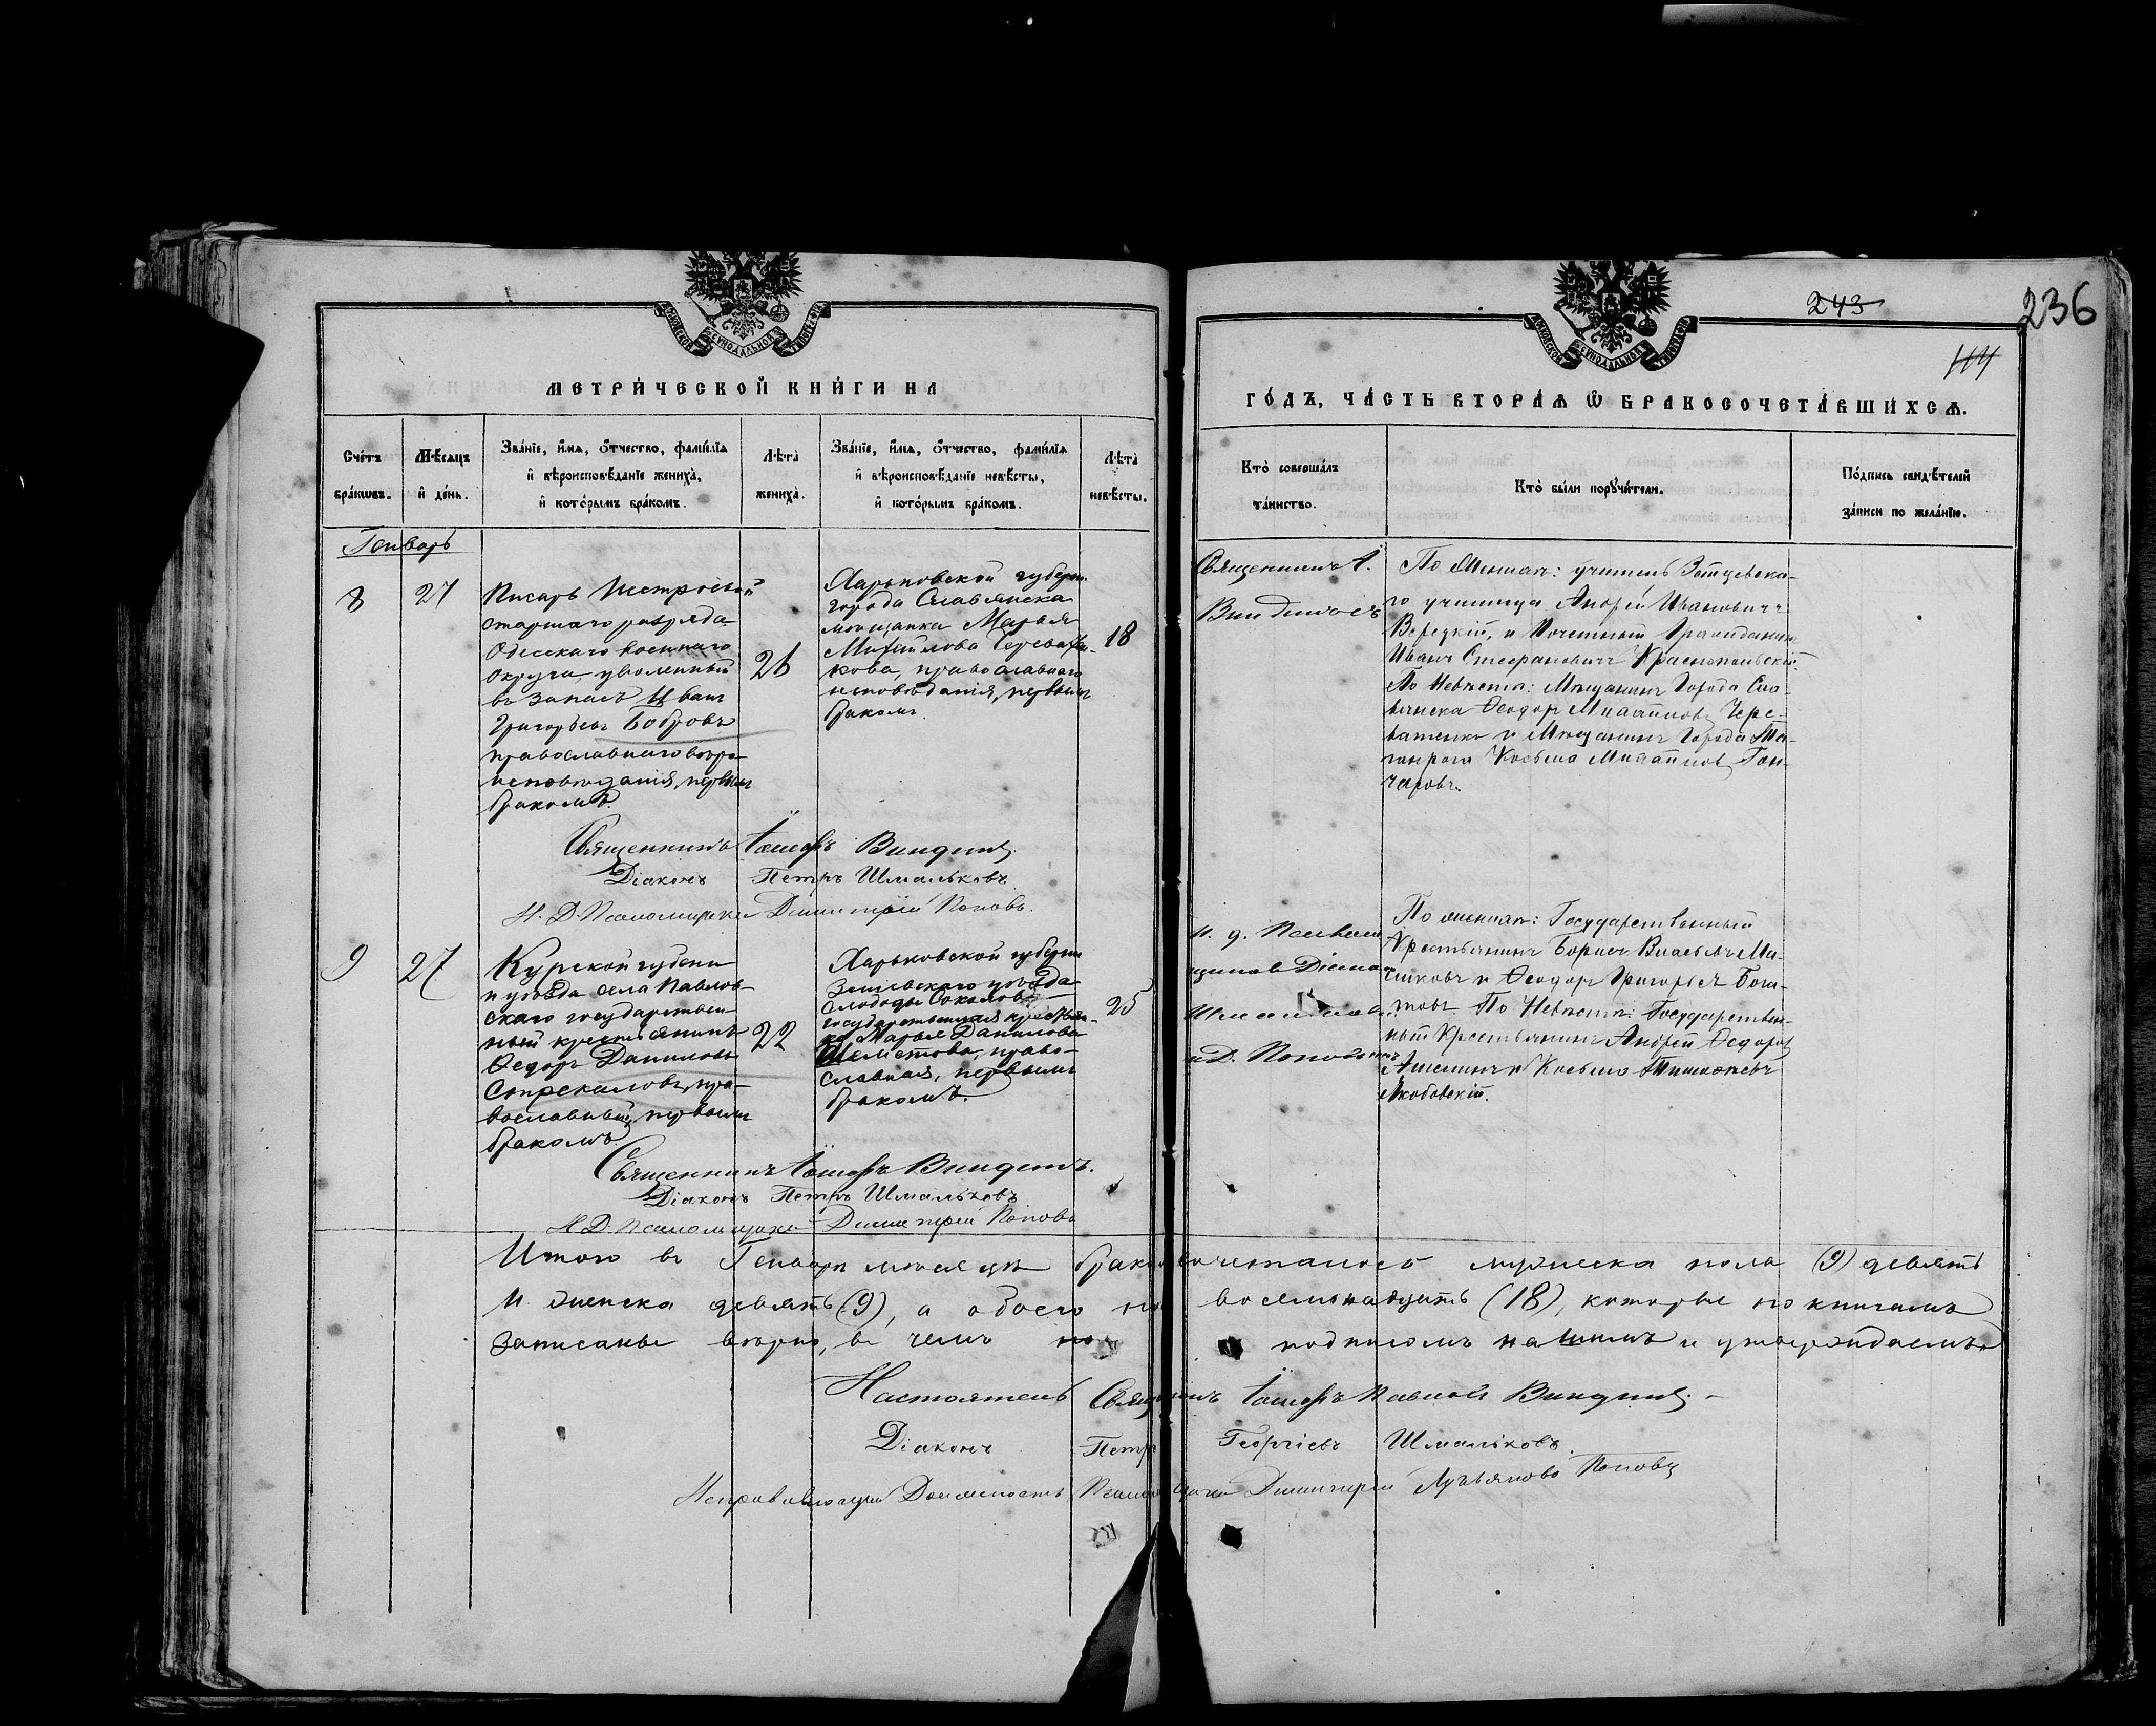 243
236
114
МЕТРИ́ЧЕСКОЙ КНИ́ГИ НА
ГО́ДЪ, ЧА́СТЬ ВТОРА́Я Ѡ БРАКОСОЧЕТА́ВШИХСЯ.
Сче́тъ
бра́ковъ.
Мѣ́сяцъ
и де́нь.
Зва́нїе, и́мя, о́тчество, фами́лїя
и вѣроисповѣ́данїе жениха̀,
и кото́рымъ бра́комъ.
Лѣта̀
жениха̀.
Зва́нїе, и́мя, о́тчество, фами́лїя
и вѣроисповѣ́данїе невѣ́сты,
и кото́рымъ бра́комъ.
Лѣта̀
невѣ́сты.
Кто̀ соверша́лъ
та́инство.
Кто̀ бы́ли пору́чители.
По́дпись свидѣ́телей
за́писи по жела́нїю.
Генварь
8
27
Писарь Нестроевой
старшаго разряда
Одесскаго военнаго
округа, уволенный
въ запасъ Иванъ
Григорьевъ Бобровъ
православнаго вѣро-
исповѣданія, первымъ
бракомъ.
26
Харьковской губерн.
города Славянска
мѣщанка Марья
Михайлова
кова, православнаго
исповѣданія, первымъ
бракомъ.
18
Священникъ І.
По Женихѣ: учитель
го училища Андрей Ивановичъ
и Почетный Гражданинъ
Иванъ Стефановичъ Краснопольскій.
По Невѣстѣ: Мѣщанинъ Города Сла-
вянска Ѳеодоръ Михайловъ Чере-
ватенко и Мѣщанинъ Города Та-
ганрога Косьма Михайловъ Гон-
чаровъ.
Священникъ Іосифъ
Діаконъ Петръ Шмальковъ
И. Д. Псаломщика Димитрій Поповъ.
9
27
Курской губерніи
и уѣзда села Павлов-
скаго государствен-
ный крестьянинъ
Ѳедоръ Даниловъ
Стрекаловъ, пра-
вославный, первымъ
бракомъ.
22
Харьковской губерніи
Зміевскаго уѣзда
слободы Соколова
государственная крестьян-
ка Марья Данилова
Шелестова, право-
славная, первымъ
бракомъ.
25
и Д. Поповъ
По женихѣ: Государственный
Крестьянинъ Борисъ Власьевъ
и Ѳеодоръ Григорьевъ
По Невѣстѣ: Государствен-
ный Крестьянинъ Андрей Ѳедоровъ
и Косьма Тимоѳеевъ
Священникъ Іосифъ
Діаконъ Петръ Шмальковъ
И. Д. Псаломщика Димитрій Поповъ
Итого въ Генварѣ мѣсяцѣ бракосочеталось мужеска пола (9) девять
и женска девять (9), а обоего восемьнадцать (18), которые по книгамъ
записаны вѣрно, въ чемъ подписомъ нашимъ и утверждаемъ
Настоятель Іосифъ Павловъ
Діаконъ Петръ Георгіевъ Шмальковъ.
Исправляющій Должность Димитрій Лукьяновъ Поповъ